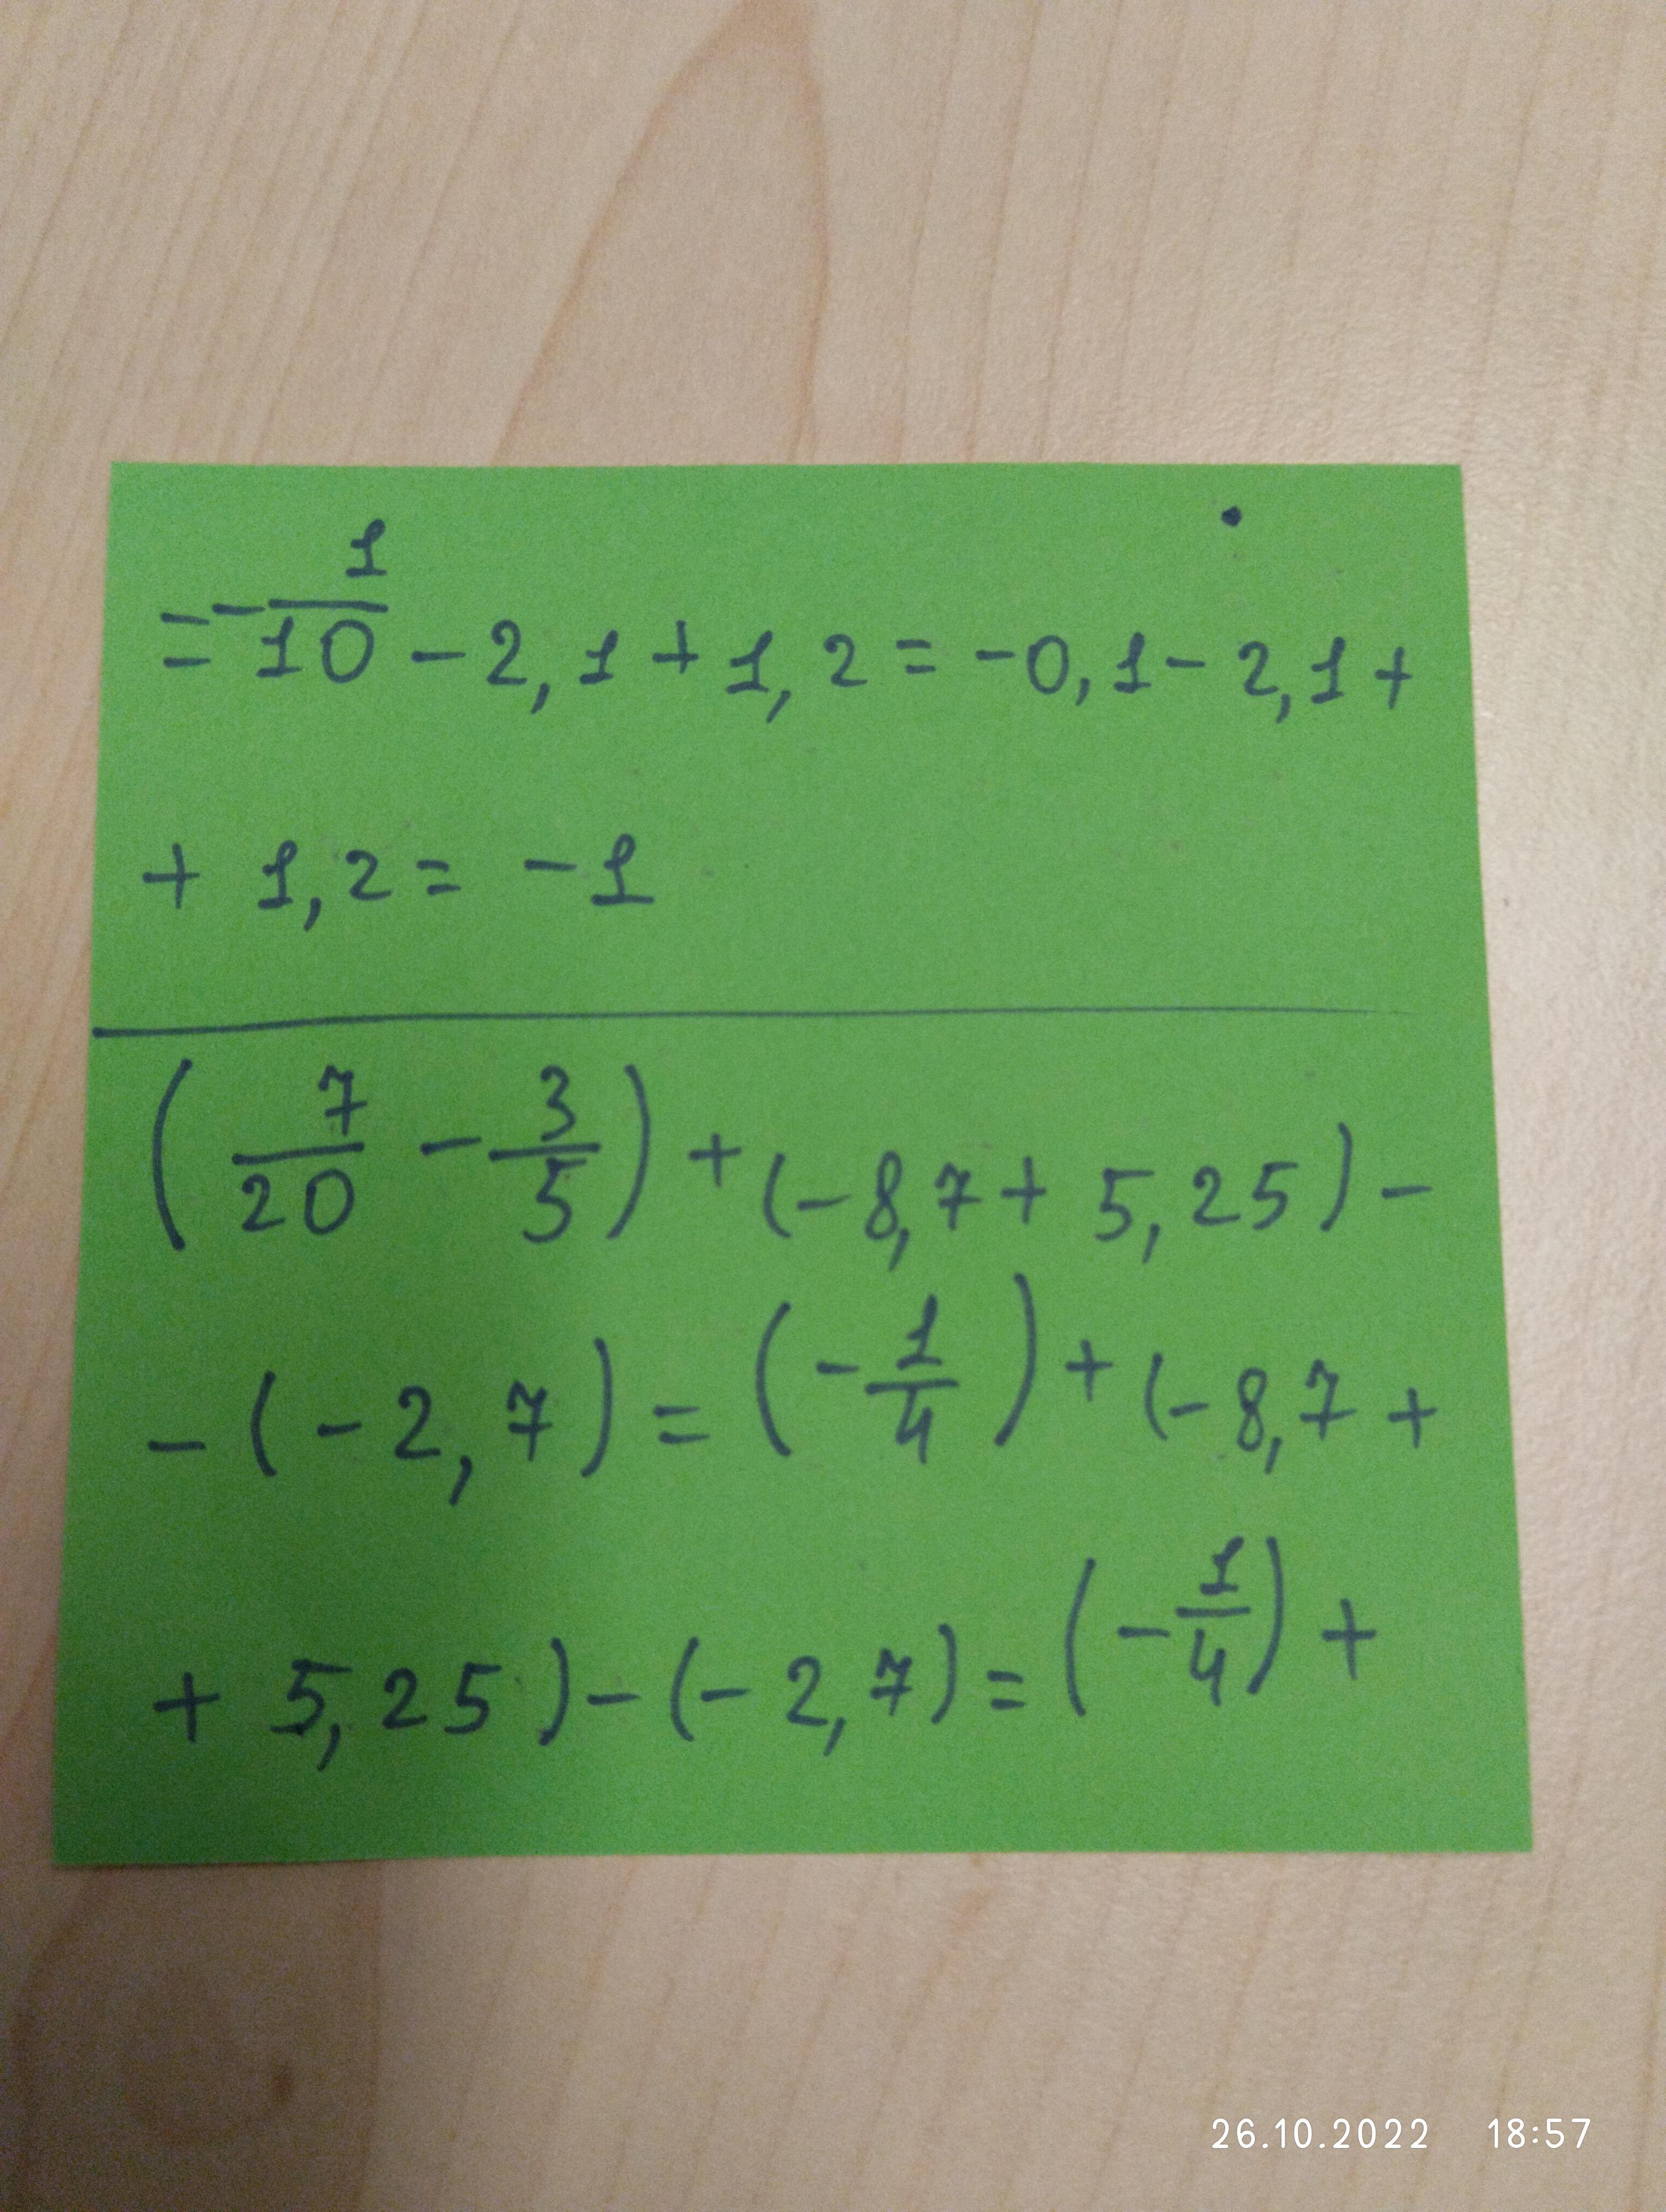 = - 1/10 - 2,1 + 1,2 = -0,1 - 2,1 +
+ 1,2 = -1
(7/20 - 3/5) + (-8,7 + 5,25) -
- (-2,7) = (-1/4) + (-8,7 +
+ 5,25) - (-2,7) = (-1/4) +
26.10.2022 18:57